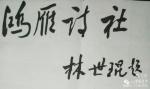 鸿雁诗社
林世琨题